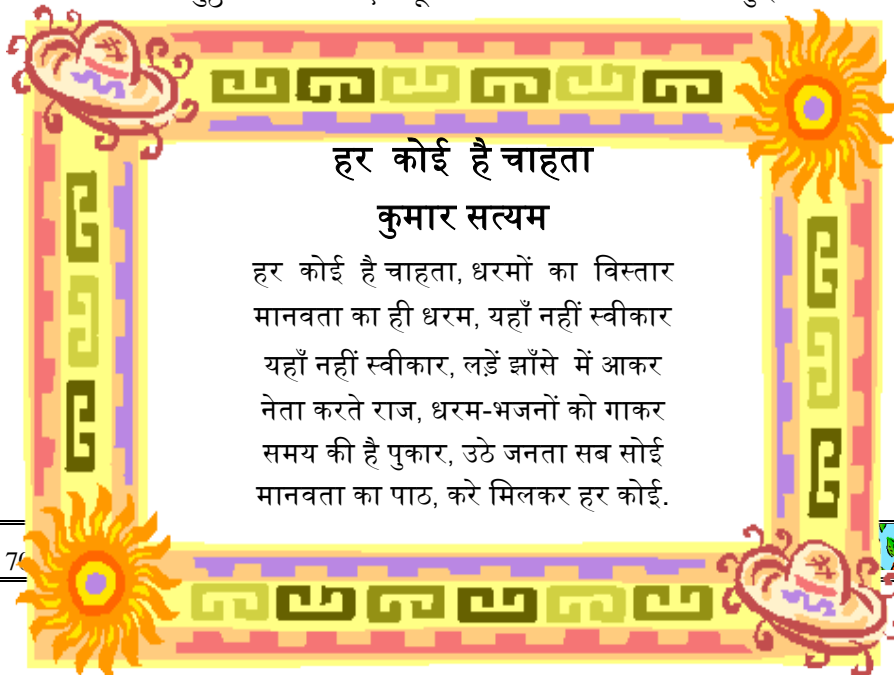 हर कोई है चाहता
कुमार सत्यम
हर कोई है चाहता, धरमों का विस्तार
मानवता का ही धरम, यहाँ नहीं स्वीकार
यहाँ नहीं स्वीकार, लड़ें झाँसे में आकर
नेता करते राज, धरम-भजनों को गाकर
समय की है पुकार, उठे जनता सब सोई
मानवता का पाठ, करे मिलकर हर कोई.